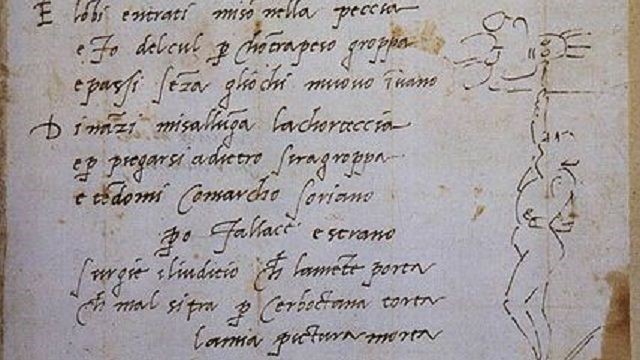 E lobi entrati miso nella peccia
e fo del cul p chotrapeso groppa
e passi seza gliochi muovo i vano
Dinazi misalluga lachorteccia
e p piegarsi adietro siragroppa
e tendomi Comarcho soriano
po fallace e strano
surgie iliuditio ch lamete porta
ch mal sitra p Cerboctana torta
lamia pictura morta